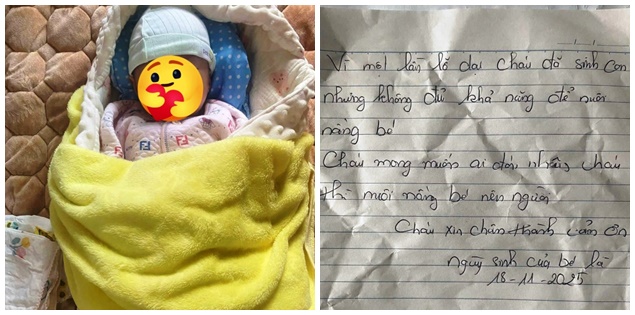 Vì một lần lỡ dại cháu đã sinh con
nhưng không đủ khả năng để nuôi
nàng bé
Cháu mong muốn ai đón, nhậy cháu
thì nuôi nâng bé nên người
Cháu xin chân thành cảm ơn
ngày sinh của bé là
18-11-2025